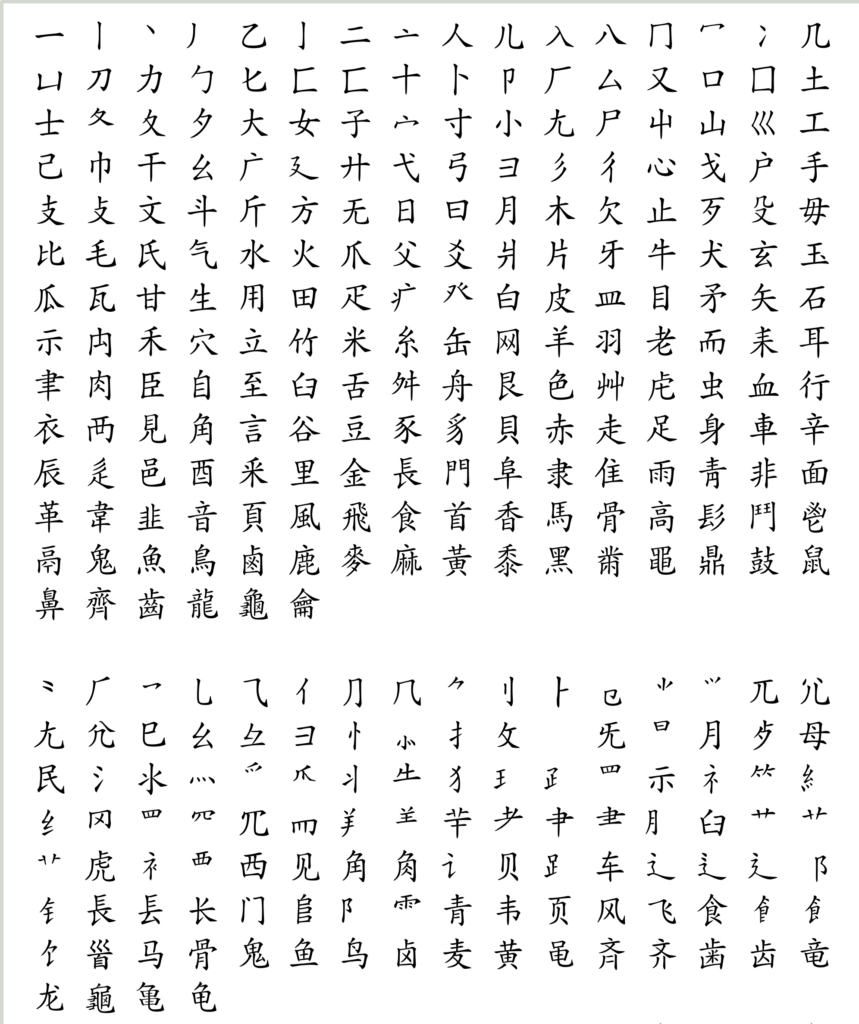 一 丨 丶 丿 乙 亅 二 亠 人 儿 入 八 冂 冖 冫 几
凵 刀 力 勹 匕 匚 匸 十 卜 卩 厂 厶 又 口 囗 土
士 夂 夊 夕 大 女 子 宀 寸 小 尢 尸 屮 山 巛 工
己 巾 干 幺 广 廴 廾 弋 弓 彐 彡 彳 心 戈 户 手
支 攴 文 斗 斤 方 无 日 曰 月 木 欠 止 歹 殳 毋
比 毛 氏 气 水 火 爪 父 爻 爿 片 牙 牛 犬 玄 玉
瓜 瓦 甘 生 用 田 疋 疒 癶 白 皮 皿 目 矛 矢 石
示 禸 禾 穴 立 竹 米 糸 缶 网 羊 羽 老 而 耒 耳
聿 肉 臣 自 至 臼 舌 舛 舟 艮 色 艸 虍 虫 血 行
衣 襾 見 角 言 谷 豆 豕 豸 貝 赤 走 足 身 車 辛
辰 辵 邑 酉 釆 里 金 長 門 阜 隶 隹 雨 青 非 面
革 韋 韭 音 頁 風 飛 食 首 香 馬 骨 高 髟 鬥 鬯
鬲 鬼 魚 鳥 鹵 鹿 麥 麻 黃 黍 黑 黹 黽 鼎 鼓 鼠
鼻 齊 齒 龍 龜 龠
⺀ ⺁ ⺂ ⺃ ⺄ ⺅ ⺆ ⺇ ⺈ ⺉ ⺊ ⺋ ⺌ ⺍ ⺎ ⺏
⺐ ⺑ ⺒ ⺓ ⺔ ⺕ ⺖ ⺗ ⺘ ⺙ ⺛ ⺜ ⺝ ⺞ ⺟
⺠ ⺡ ⺢ ⺣ ⺤ ⺥ ⺦ ⺧ ⺨ ⺩ ⺪ ⺫ ⺬ ⺭ ⺮ ⺯
⺰ ⺱ ⺲ ⺳ ⺴ ⺵ ⺶ ⺷ ⺸ ⺹ ⺺ ⺻ ⺼ ⺽ ⺾ ⺿
⻀ ⻁ ⻂ ⻃ ⻄ ⻅ ⻆ ⻇ ⻈ ⻉ ⻊ ⻋ ⻌ ⻍ ⻎ ⻏
⻐ ⻑ ⻒ ⻓ ⻔ ⻕ ⻖ ⻗ ⻘ ⻙ ⻚ ⻛ ⻜ ⻝ ⻞ ⻟
⻠ ⻡ ⻢ ⻣ ⻤ ⻥ ⻦ ⻧ ⻨ ⻩ ⻪ ⻫ ⻬ ⻭ ⻮ ⻯
⻰ ⻱ ⻲ ⻳